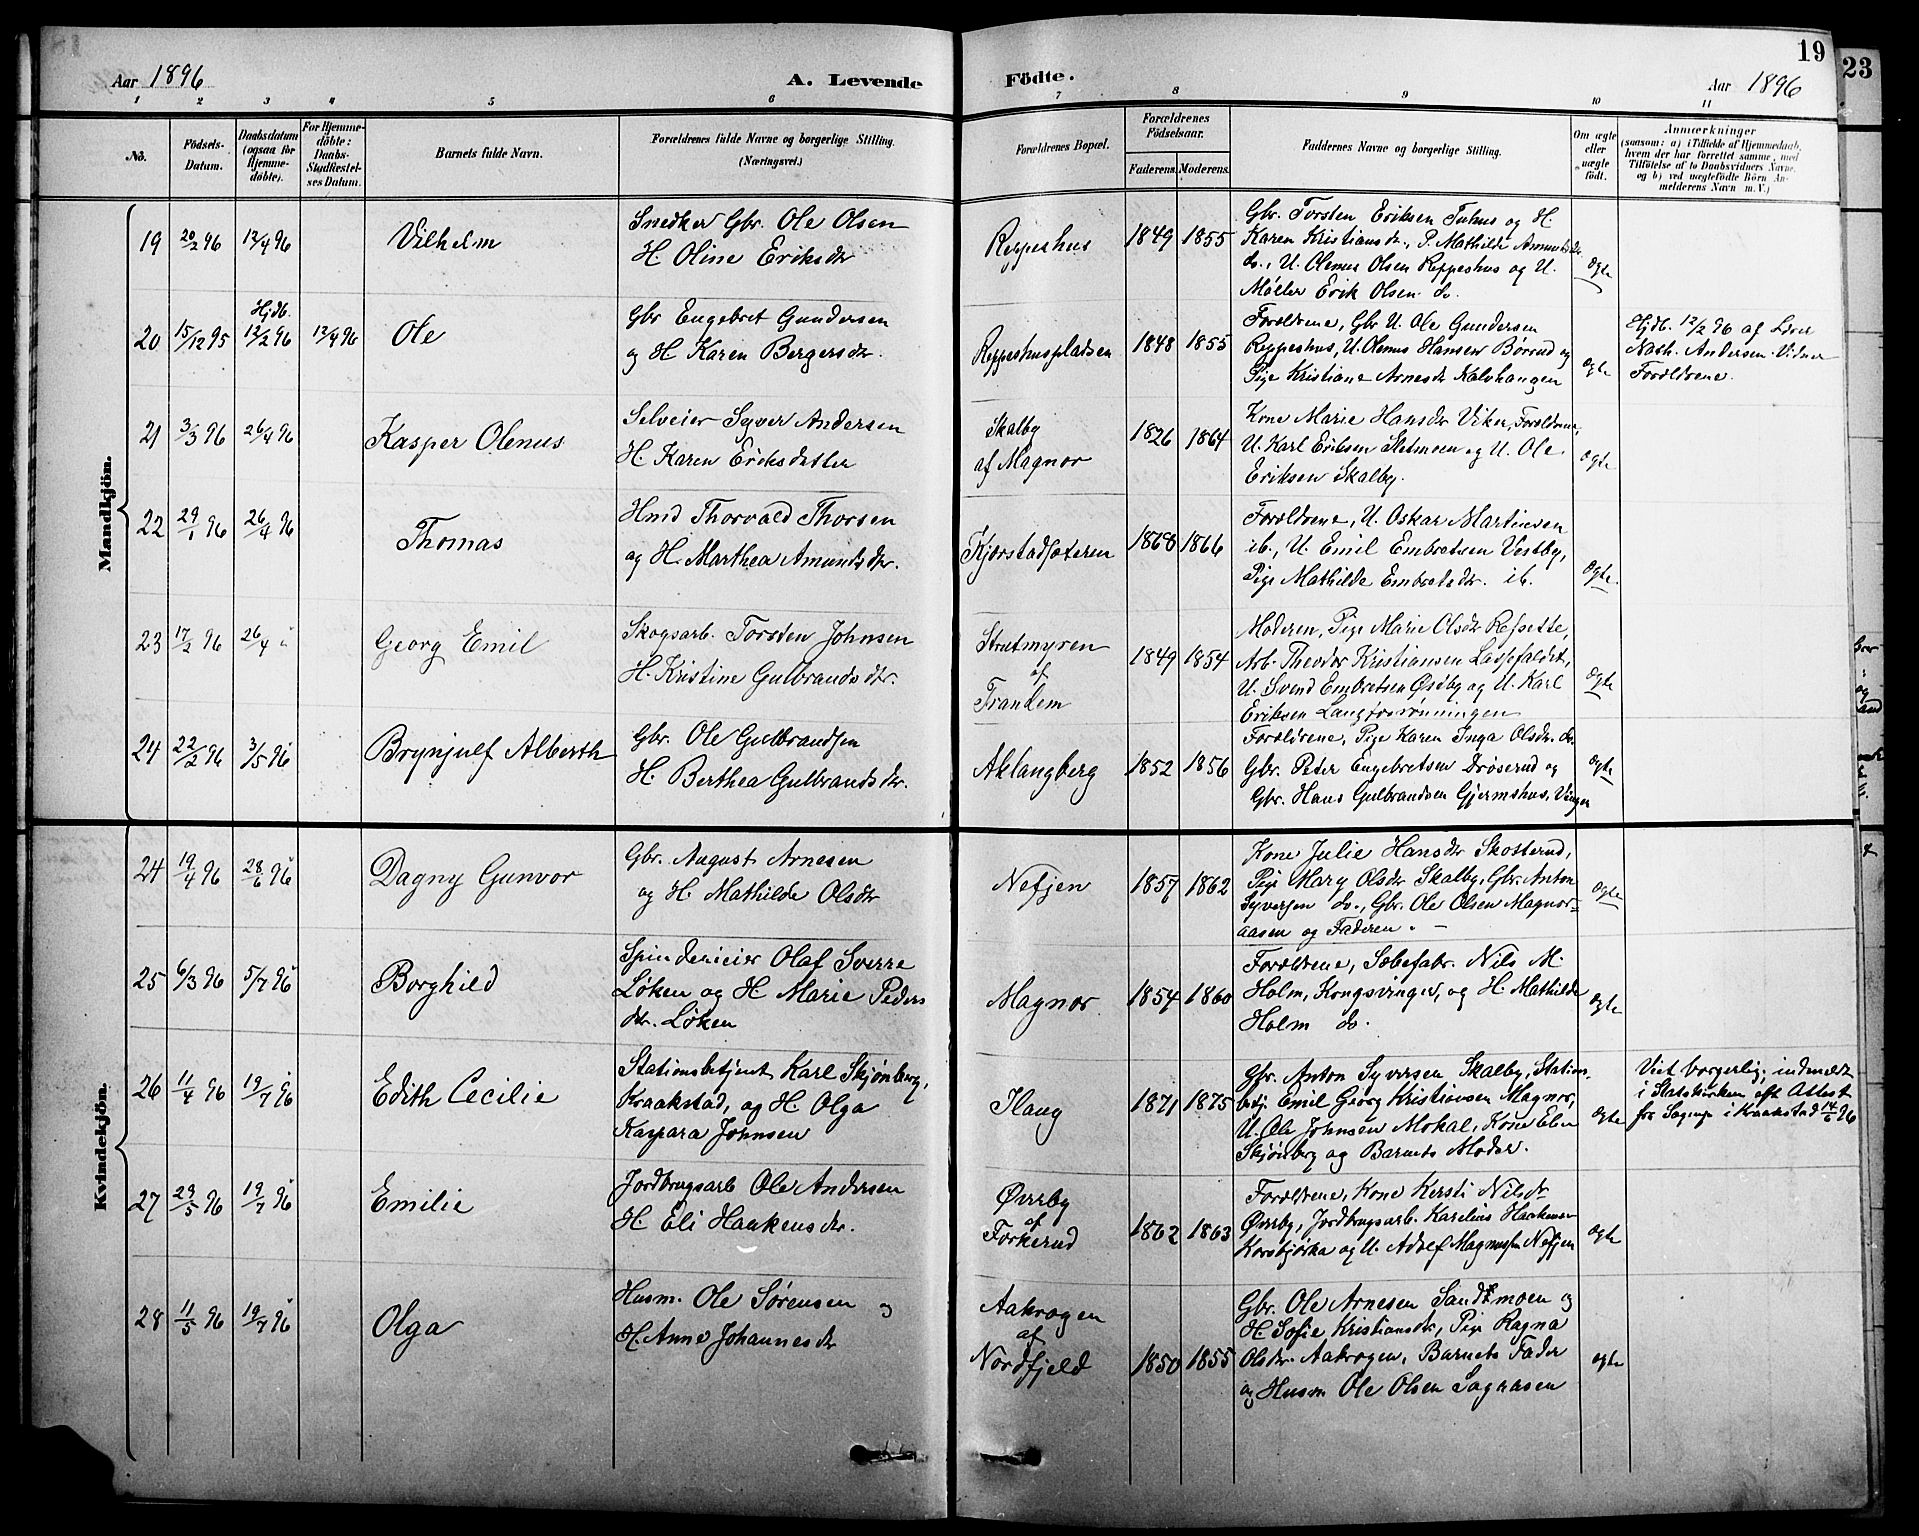 Aar 1896
A. Levende
Födte.
Aar 1896
19
23
1 2 3 4 5 6 7 8 9 10 11
No.
Födsels-Datum.
Daabsdatum (ogsaa för Hjemme-döbte).
For Hjemme-döbte: Daabs-Stadfæstel-ses Datum.
Barnets fulde Navn.
Forældrenes fulde Navne og borgerlige Stilling. (Næringsvei.)
Forældrenes Bopæl.
Forældrenes Födselsaar.
Faderens. Moderens.
Faddernes Navne og borgerlige Stilling.
Om ægte eller uægte født.
Anmærkninger
(saasom: a) i Tilfælde af Hjemmedaab, hvem der har forrettet samme, med Tilföielse af to Daabsvidners Navne, og b) ved uægtefödte Börn An-melderens Navn m. V.)
Mandkjön.
19 20/2 96 12/4 96 Vilhelm
Snedker Gbr. Ole Olsen
H. Oline Eriksdr
Reppeshus 1849 1855
Gbr. Torsten Eriksen Tuhus og H.
Karen Kristiansdr., P. Mathilde Amundsdr
do., U. Olenus Olsen Reppeshus og U.
Møller Erik Olsen do.
Ægte
20 15/12 95 Hjdb. 12/2 96 12/4 96 Ole
Gbr Engebret Gundersen
og H Karen Bergersdr.
Reppeshuspladsen 1848 1855
Forældrene, Gbr U. Ole Gundersen
Reppeshus, U. Olenus Hansen Børrud og
Pige Kristiane Arnesdr Kalvhaugen
Ægte
Hjdb. 12/2 96 af Lærer
Nath. Andersen. Vidner
Forældrene.
21 3/3 96 26/4 96 Kasper Olenus
Selveier Syver Andersen
H. Karen Eriksdatter
Skalby
af Magnor
1826 1864
Kone Marie Hansdr Viker, Forældrene,
U. Karl Eriksen Sletmoen og U. Ole
Eriksen Skalby.
Ægte
22 29/1 96 26/4 96 Thomas
Hmd Thorvald Thorsen
og H. Marthea Amundsdr.
Kjørstadsæteren 1868 1866
Forældrene, U. Oskar Martinsen
ib., U. Emil Embretsen Vestby,
Pige Mathilde Embretsdr. ib.
Ægte.
23 17/2 96 26/4 Georg Emil
Skogsarb. Torsten Johnsen
H. Kristine Gulbrandsdtr.
Strutmyren
af
Trandem
1849 1854
Moderen, Pige Marie Olsdr Refsette,
Arb. Theodor Kristiansen Lassefaldet,
U. Svend Embretsen Øseby og U. Karl
Eriksen Langforsrønningen
Ægte
24 22/2 96 3/5 96 Brynjulf Alberth
Gbr. Ole Gulbrandsen
H. Berthea Gulbrandsdr.
Aklangberg 1852 1856
Forældrene, Pige Karen Inga Olsdr. do.
Gbr. Peter Engebretsen Drøserud og
Gbr. Hans Gulbrandsen Gjermshus, Vinger
Ægte
Kvindekjön.
24 19/4 96 28/6 96 Dagny Gunvor
Gbr. August Arnesen
og H. Mathilde Olsdtr
Nefjen 1857 1862
Kone Julie Hansdr Skosterud,
Pige Mary Olsdr Skalby, Gbr. Anton
Syversen do., Gbr. Ole Olsen Magnor=
aasen og Faderen.
Ægte
25 6/3 96 5/7 96 Borghild
Spinderieier Olaf Sverre
Løken og H. Marie Peders
dtr. Løken
Magnor 1854 1860
Forældrene, Sæbefabr. Nils M.
Holm, Kongsvinger, og H. Mathilde
Holm do.
Ægte
26 11/4 96 19/7 96 Edith Cecilie
Stationsbetjent Karl Skjønberg,
Kraakstad, og H. Olga
Kaspara Johnsen
Ilaug 1871 1875
Gbr. Anton Syversen Skalby, Stations-
betj. Emil Georg Kristiansen Magnor,
U. Ole Johnsen Mokal, Kone Elen
Skjønberg og Barnets Moder.
Ægte
Viet borgerlig, indmeldt
i Statskirken efter Attest
fra Sogнер i Kraakstad 14/6 96
27 29/5 96 19/7 96 Emilie
Jordbrugsarb Ole Andersen
H. Eli Haakensdr.
Øvreby
af
Forkerud
1862 1863
Forældrene, Kone Kersti Nilsdr
Øvreby, Jordbrugsarb. Karelius Haakensen
Korsbjørka og U. Adolf Magnussen Nefjen
Ægte
28 11/5 96 19/7 96 Olga
Husm. Ole Sørensen og
H. Anne Johannesdr
Aakrogen
af
Nordfjeld
1850 1855
Gbr. Ole Arnesen Sandmoen og
H. Sofie Kristiansdr, Pige Ragna
Olsdr. Aakrogen, Barnets Fader
og Husm Ole Olsen Sagaasen
Ægte